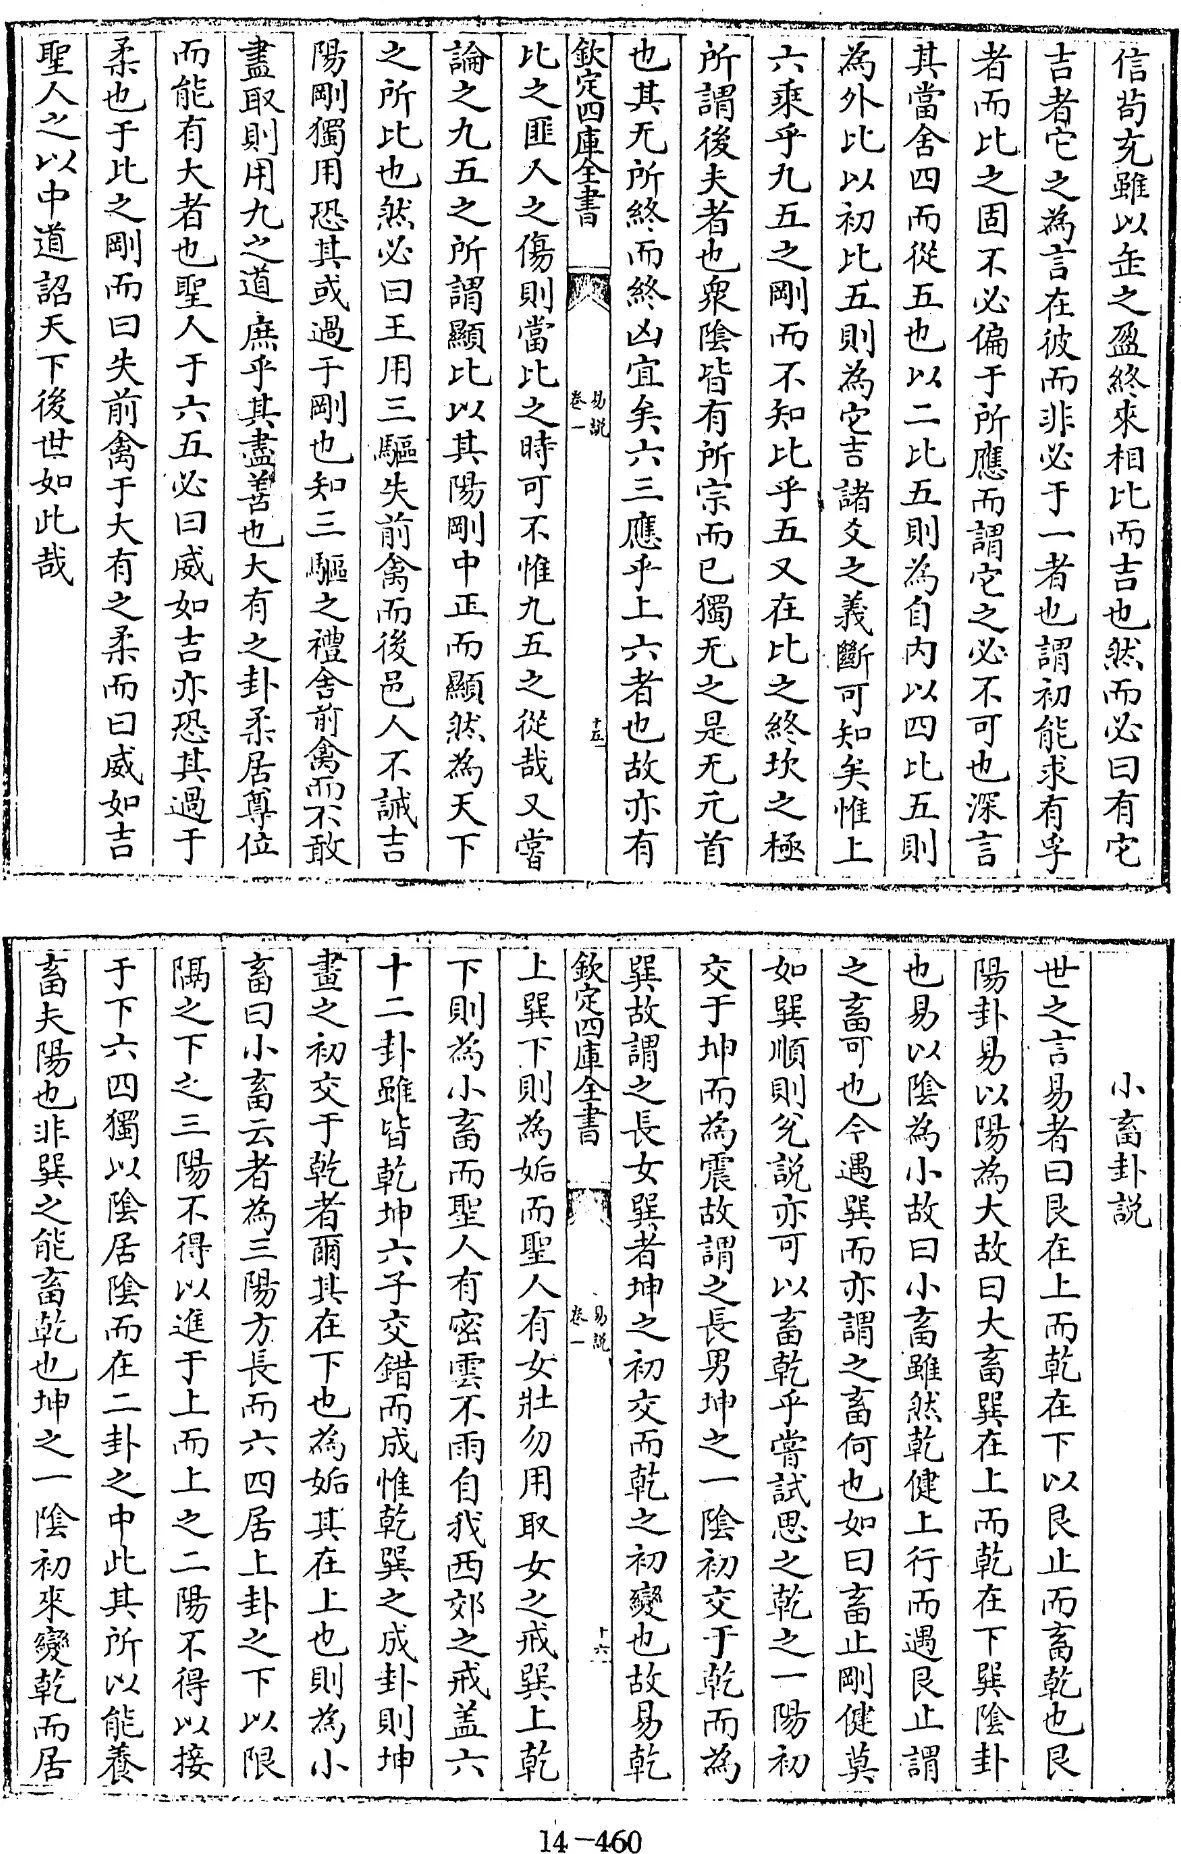 信苟充雖以缶之盈終來相比而吉也然而必曰有它
吉者它之為言在彼而非必于一者也謂初能求有孚
者而比之固不必偏于所應而謂它之必不可也深言
其當舍四而從五也以二比五則為自内以四比五則
為外比以初比五則為它吉諸爻之義斷可知矣惟上
六乘乎九五之剛而不知比乎五又在比之終坎之極
所謂後夫者也衆陰皆有所宗而已獨无之是无元首
也其无所終而終凶宜矣六三應乎上六者也故亦有
欽定四庫全書
易說
卷一
十五
比之匪人之傷則當比之時可不惟九五之從哉又嘗
論之九五之所謂顯比以其陽剛中正而顯然為天下
之所比也然必曰王用三驅失前禽而後邑人不誡吉
陽剛獨用恐其或過于剛也知三驅之禮舍前禽而不敢
盡取則用九之道庶乎其盡善也大有之卦柔居尊位
而能有大者也聖人于六五必曰威如吉亦恐其過于
柔也于比之剛而曰失前禽于大有之柔而曰威如吉
聖人之以中道詔天下後世如此哉
小畜卦説
世之言易者曰艮在上而乾在下以艮止而畜乾也艮
陽卦易以陽為大故曰大畜巽在上而乾在下巽陰卦
也易以陰為小故曰小畜雖然乾健上行而遇艮止謂
之畜可也今遇巽而亦謂之畜何也如曰畜止剛健莫
如巽順則兊説亦可以畜乾乎嘗試思之乾之一陽初
交于坤而為震故謂之長男坤之一陰初交于乾而為
巽故謂之長女巽者坤之初交而乾之初變也故易乾
欽定四庫全書
易說
卷一
十六
上巽下則為姤而聖人有女壯勿用取女之戒巽上乾
下則為小畜而聖人有密雲不雨自我西郊之戒盖六
十二卦雖皆乾坤六子交錯而成惟乾巽之成卦則坤
畫之初交于乾者爾其在下也為姤其在上也則為小
畜曰小畜云者為三陽方長而六四居上卦之下以限
隔之下之三陽不得以進于上而上之二陽不得以接
于下六四獨以陰居陰而在二卦之中此其所以能養
畜夫陽也非巽之能畜乾也坤之一陰初來變乾而居
14-460